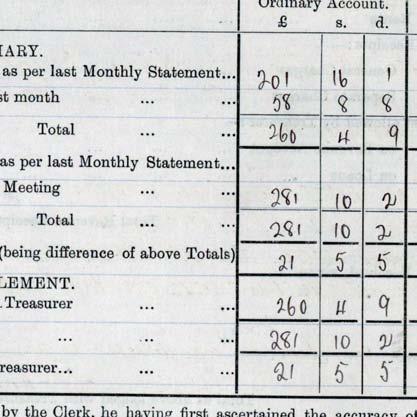 Ordinary Account.
£ s. d.
ARY.
as per last Monthly Statement... 201 16 1
st month ... ... 58 8 8
Total ... ... 260 4 9
as per last Monthly Statement...
Meeting ... ... 281 10 2
Total ... ... 281 10 2
(being difference of above Totals) 21 5 5
LEMENT.
Treasurer ... ... 260 4 9
... ... 281 10 2
reasurer... ... 21 5 5
by the Clerk, he having first ascertained the accuracy of